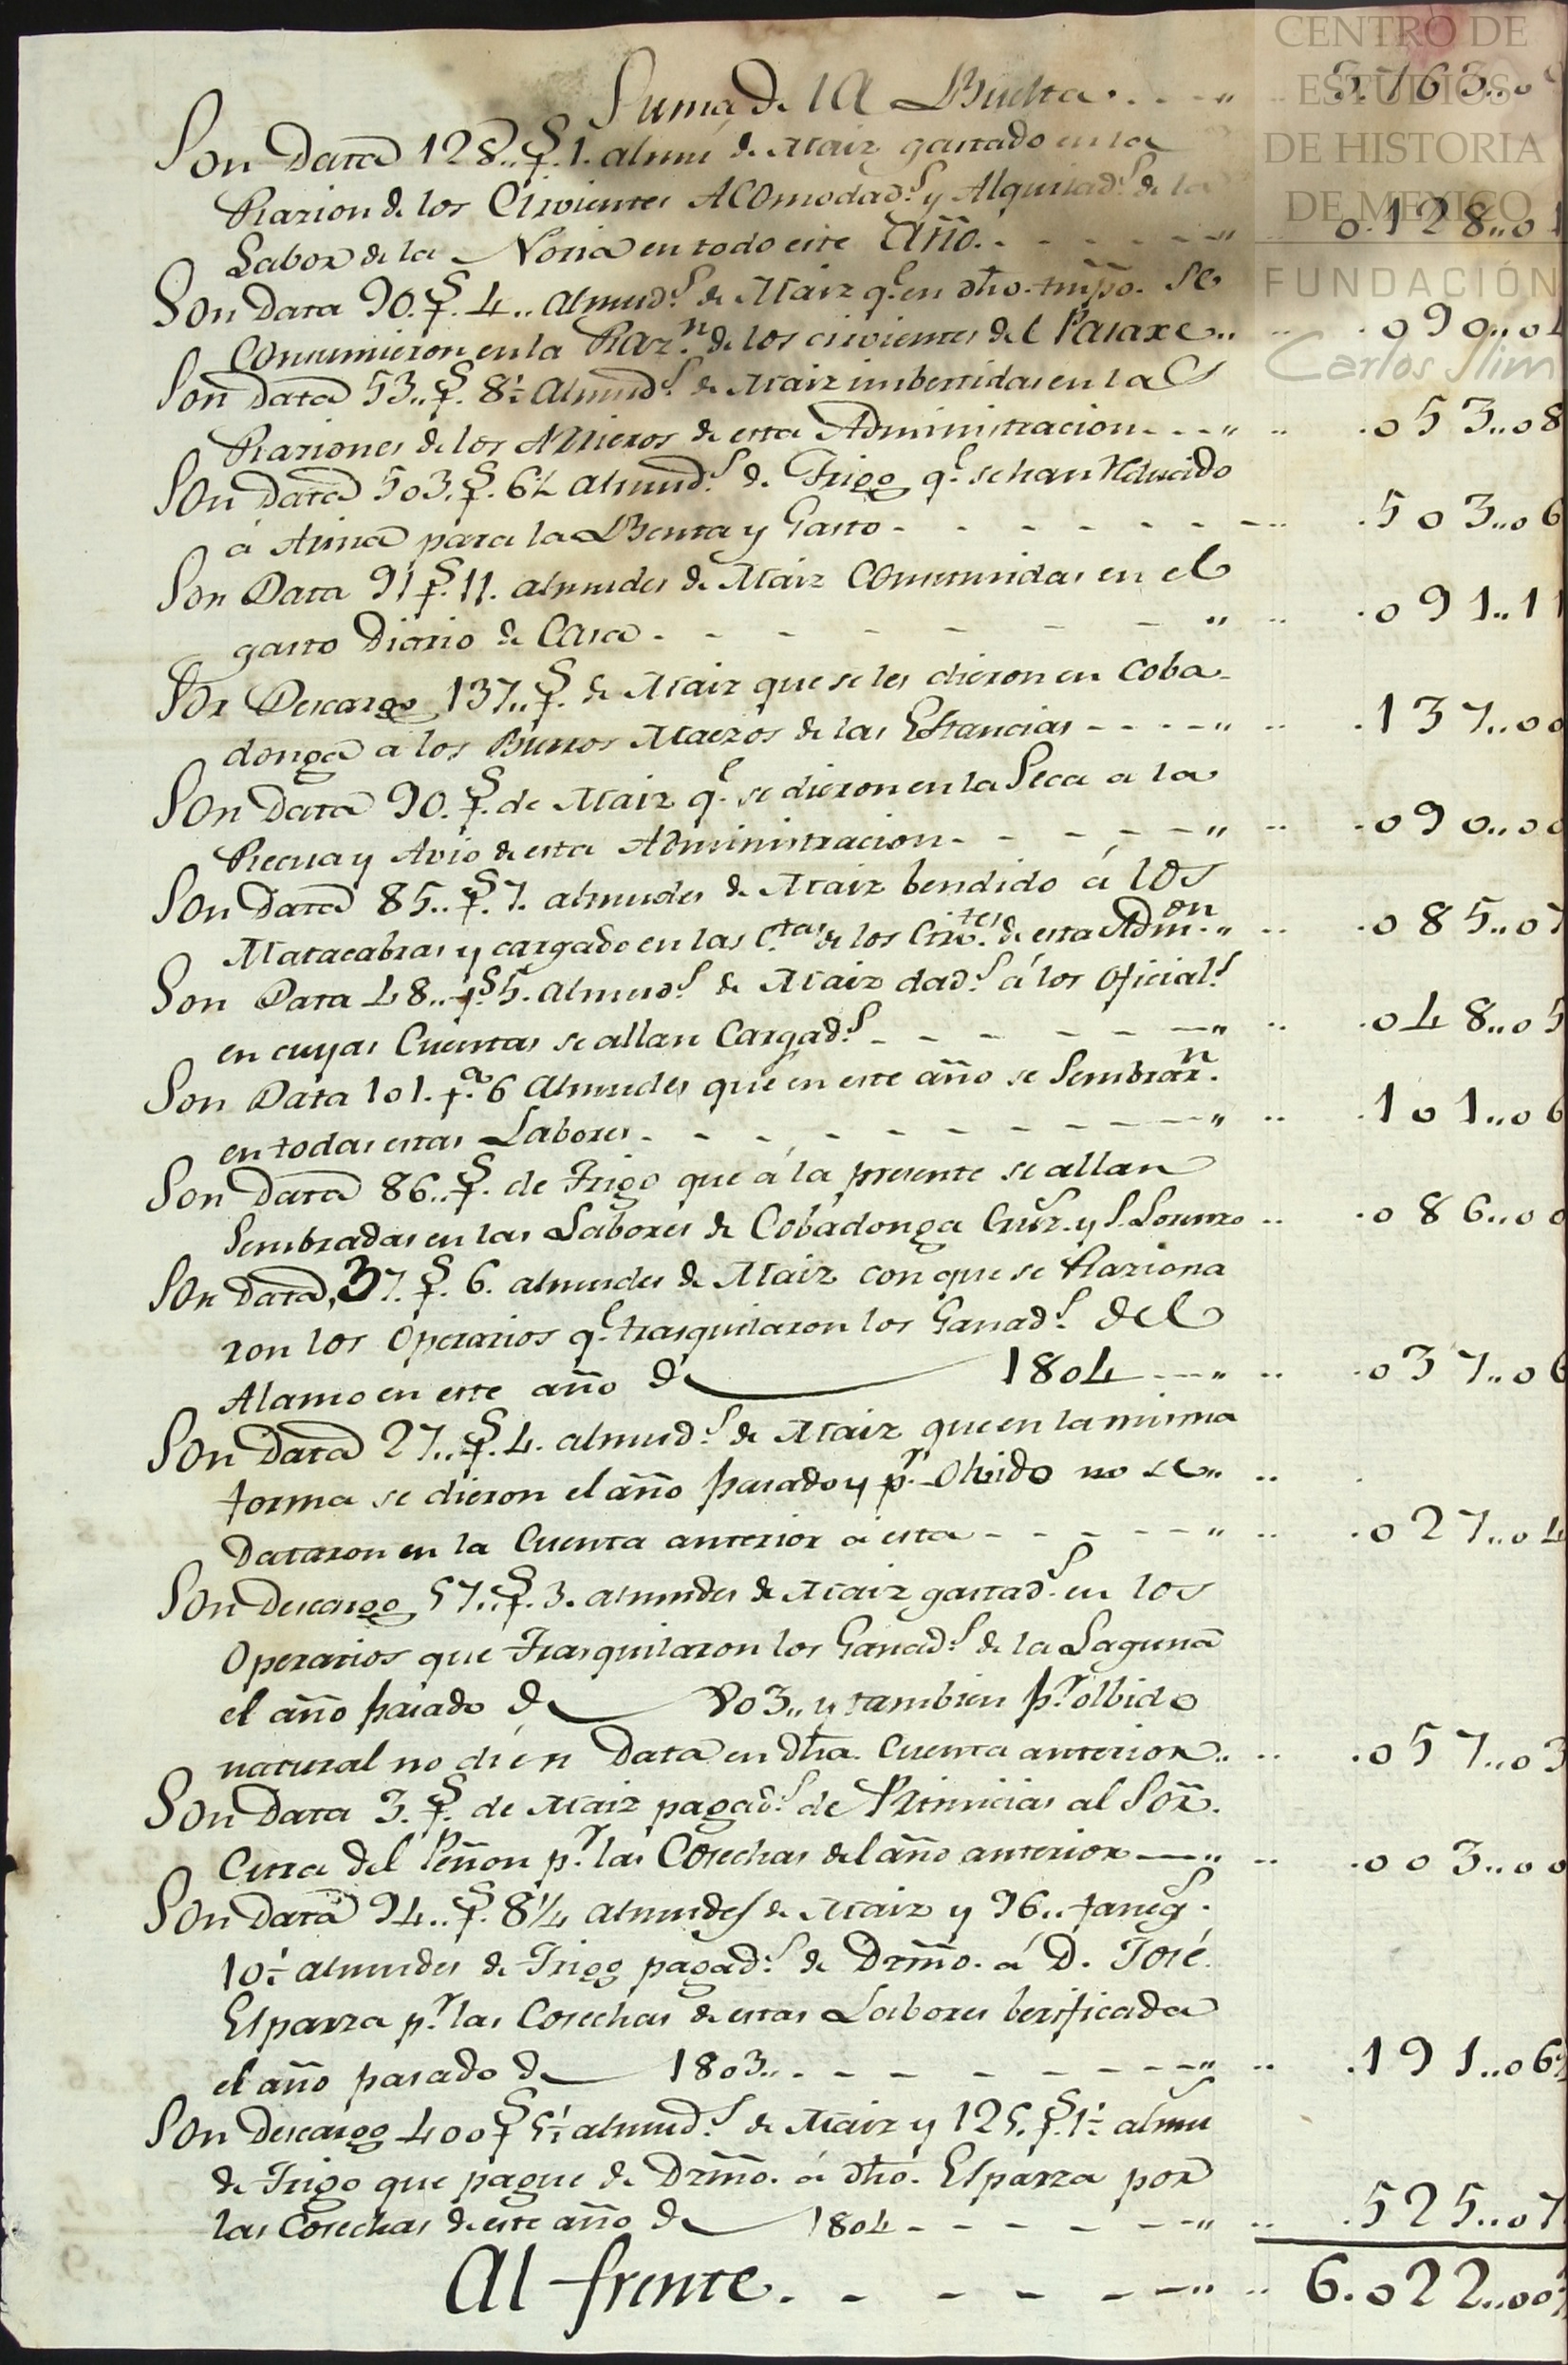 CENTRO DE
ESTUDIOS
DE HISTORIA
DE MEXICO
FUNDACIÓN
Carlos Slim
Suma de la Buelta 3.763..0
Son Data 128.. f.s 1. almu de Maiz gastado en la
Razion de los Cirvientes Acomodad.s y Alquilad.s de la
Labor de la Noria en todo este Año. 0.128..01
Son Data 90. f.s 4.. Almud.s de Maiz q.e en dho. tmpo. se
Consumieron en la Raz.n de los cirvientes del Pasaxe.. .090..04
Son Data 53.. f.s 8½ Almud.s de Maiz imbertidas en las
Raziones de los Arrieros de esta Administracion .053..08
Son Data 503. f.s 6½ almud.s de Trigo q.e se han reducido
á Arina para la Benta y Gasto .503..06
Son Data 91 f.s 11. almudes de Maiz Consumidas en el
gasto Diario de Casa .091..11
Por Descargo 137.. f.s de Maiz que se les dieron en Coba-
donga a los Burros Maeros de las Estancias .137..00
Son Data 90. f.s de Maiz q.e se dieron en la Seca a la
Recua y Avio de esta Administracion .090..00
Son Data 85.. f.s 7. almudes de Maiz bendido á los
Matacabras y cargado en las C.tas de los Cirv.tes de esta Adm.on .085..07
Son Data 48.. f.s 5. Almud.s de Maiz dad.s á los Oficial.s
en cuyas Cuentas se allan Cargad.s .048..05
Son Data 101. f.a 6 Almudes que en este año se Sembrar.n
en todas estas Labores .101..06
Son Data 86.. f.s de Trigo que á la presente se allan
Sembradas en las Labores de Cobadonga Cruz. y S. Lorenzo .086..00
Son Data, 37. f.s 6. almudes de Maiz con que se Raziona
ron los Operarios q.e trasquilaron los Ganad.s del
Alamo en este año de 1804 .037..06
Son Data 27.. f.s 4. almud.s de Maiz que en la misma
forma se dieron el año pasado y p.r Olvido no se
Dataron en la Cuenta anterior a esta .027..04
Son Descargo 57.. f.s 3. almudes de Maiz gastad.s en los
Operarios que Trasquilaron los Ganad.s de la Laguna
el año pasado de 803.. y tambien p.r olbido
natural no di en Data en dha. Cuenta anterior.. .057..03
Son Data 3. f.s de Maiz pagad.s de Primicias al Sor.
Cura del Peñon p.r las Cosechas del año anterior .003..00
Son Data 94.. f.s 8¼ almudes de Maiz y 96.. faneg.s
10½ almudes de Trigo pagad.s de Dzmo. á D. José
Esparza p.r las Cosechas de estas Labores berificada
el año pasado de 1803.. .191..06
Son Descargo 400 f.s 5½ almud.s de Maiz y 125. f.s 1½ almu
de Trigo que pague de Dzmo. á dho. Esparza por
las Cosechas de este año de 1804 .525..07
Al frente. 6.022..00